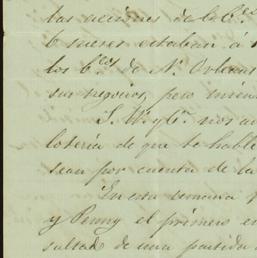 las acciones de la C.ª
6 meses estaban á
los b.cos de N. Orleans
sus negocios, pero
S. W y C.ª nos
lotería de que te hable
sean por cuenta de la
En esta semana
y Penny el primero en
sultado de una partida